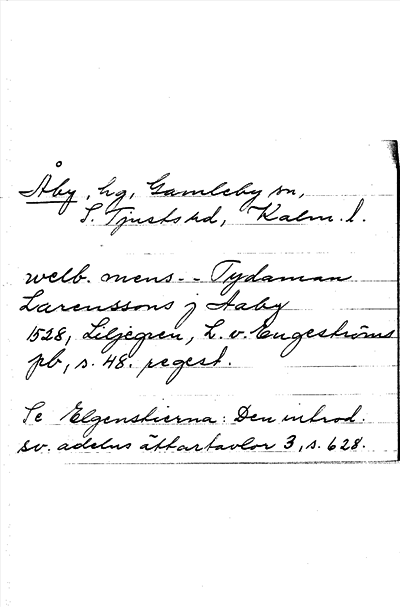 Åby, hg, Gamleby sn,
S. Tjusts hd, Kalm. l.
welb. mens - - Tydaman
Larenssons j Aaby
1528, Liljegren, L. v. Engeströms
pb, s. 48. regest.
Se Elgenstierna: Den introd.
sv. adelns ättartavlor 3, s. 628.